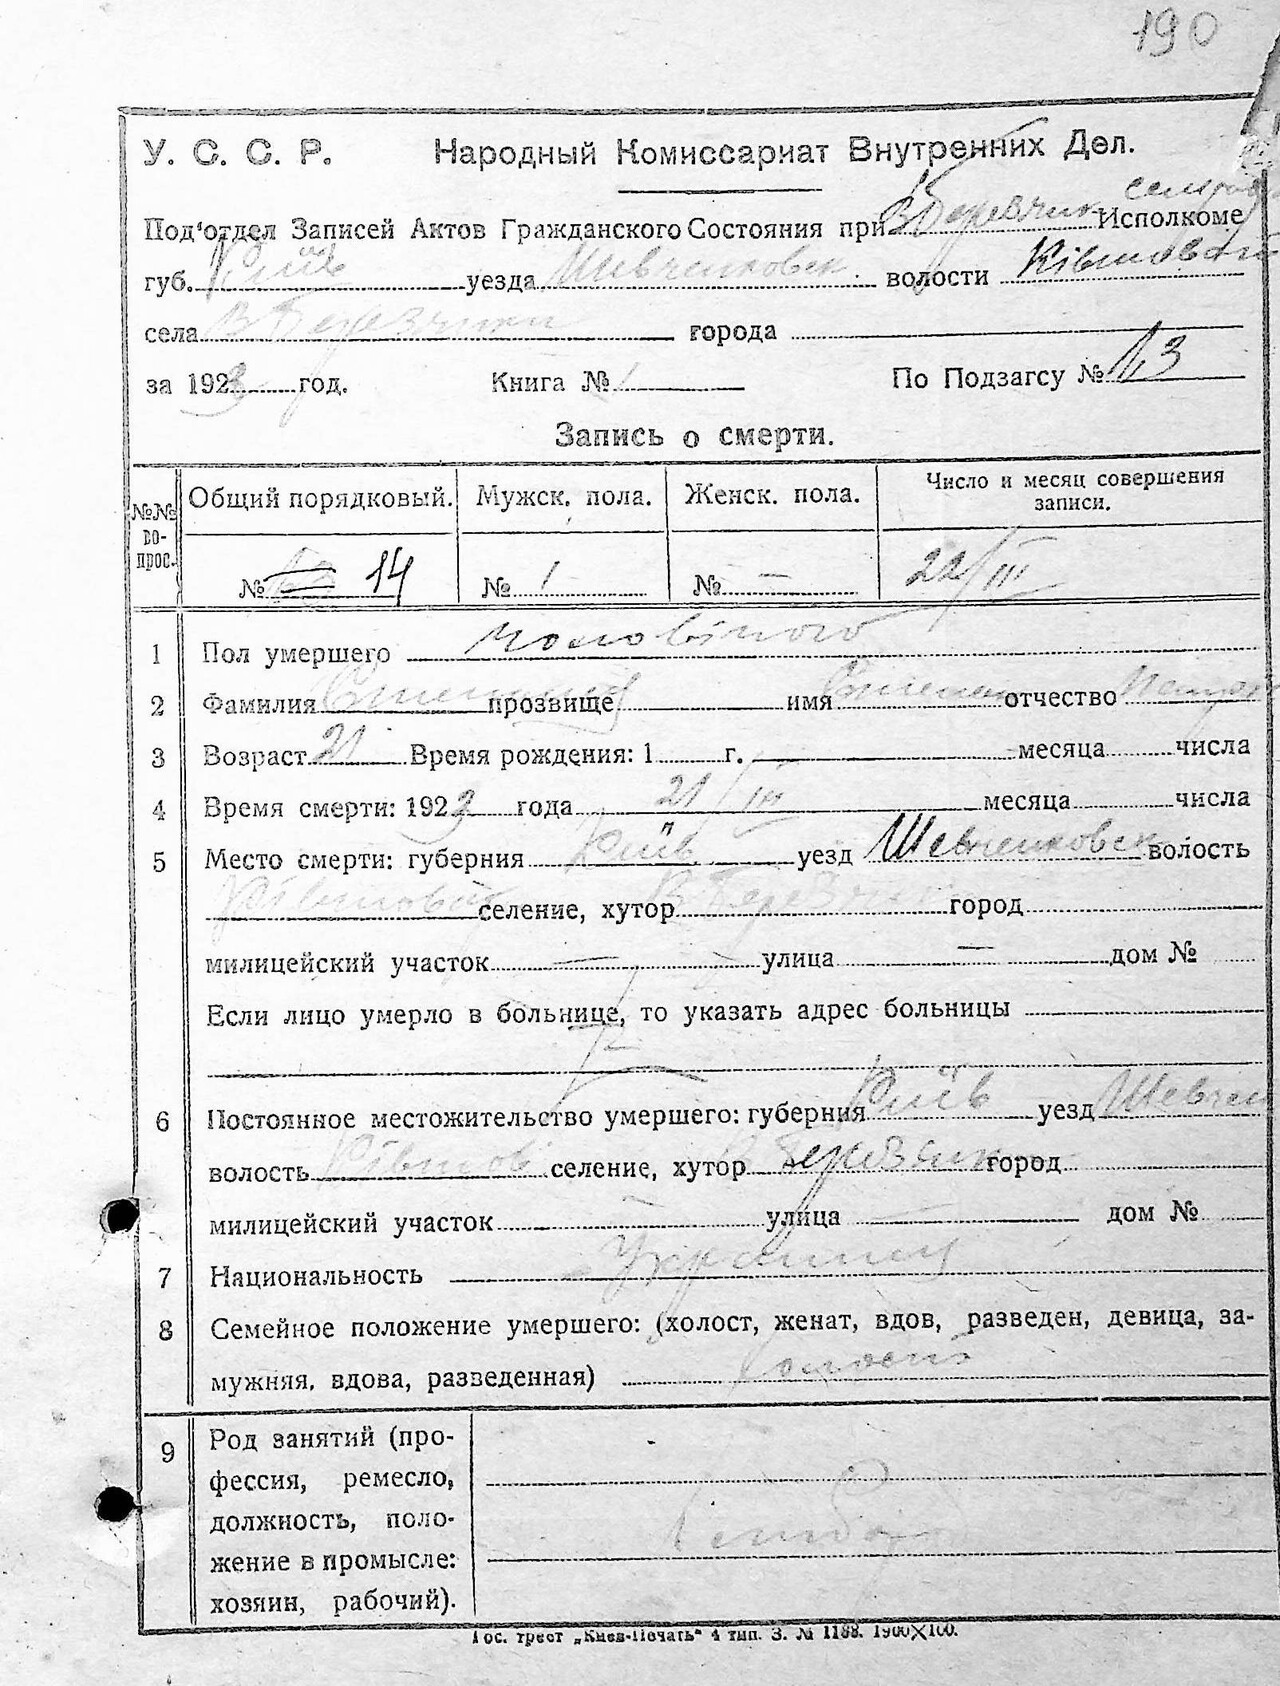 190
У. С. С. Р. Народный Комиссариат Внутренних Дел.
Под'отдел Записей Актов Гражданского Состояния при В Березянк Исполкоме
губ. Київ уезда Шевченковск волости
села В Березянки города
за 1923 год. Книга № 1 По Подзагсу № 13
Запись о смерти.
№№ во-прос. Общий порядковый. Мужск. пола. Женск. пола. Число и месяц совершения записи.
№ 13 14 № 1 № — 22/III
1 Пол умершего чоловічого
2 Фамилия прозвище имя Степан отчество
3 Возраст 21 Время рождения: 1 г. месяца числа
4 Время смерти: 1923 года 21/III месяца числа
5 Место смерти: губерния Київ уезд Шевченковск волость
селение, хутор В Березянка город
милицейский участок — улица — дом №
Если лицо умерло в больнице, то указать адрес больницы
6 Постоянное местожительство умершего: губерния Київ уезд Шевчен
волость селение, хутор В Березянк город
милицейский участок — улица — дом №
7 Национальность Українец
8 Семейное положение умершего: (холост, женат, вдов, разведен, девица, за-
мужняя, вдова, разведенная)
9 Род занятий (про-
фессия, ремесло,
должность, поло-
жение в промысле:
хозяин, рабочий).
Гос. трест „Киев-Печать" 4 тип. З. № 1188. 1900×100.